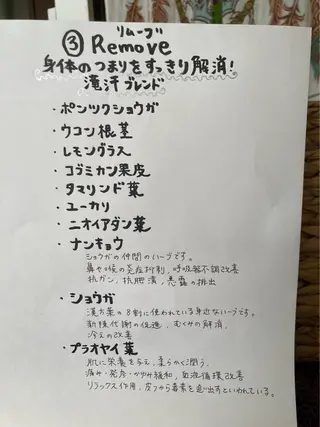 リムーブ
③ Remove
身体のつまりをすっきり解消!
滝汗ブレンド
・ポンツクショウガ
・ウコン根茎
・レモングラス
・コブミカン果皮
・タマリンド葉
・ユーカリ
・ニオイアダン葉
・ナンキョウ
ショウガの仲間のハーブです。
鼻や喉の炎症抑制、呼吸器不調改善
抗ガン、抗腫瘍、悪露の排出
・ショウガ
漢方薬の8割に使われている身近なハーブです。
新陳代謝の促進、むくみの解消、
冷えの改善
・プラオヤイ葉
肌に栄養を与え、柔らかく潤う。
痛み・発疹・かゆみ緩和、血流循環改善
リラックス作用、皮フから毒素を追い出すといわれている。